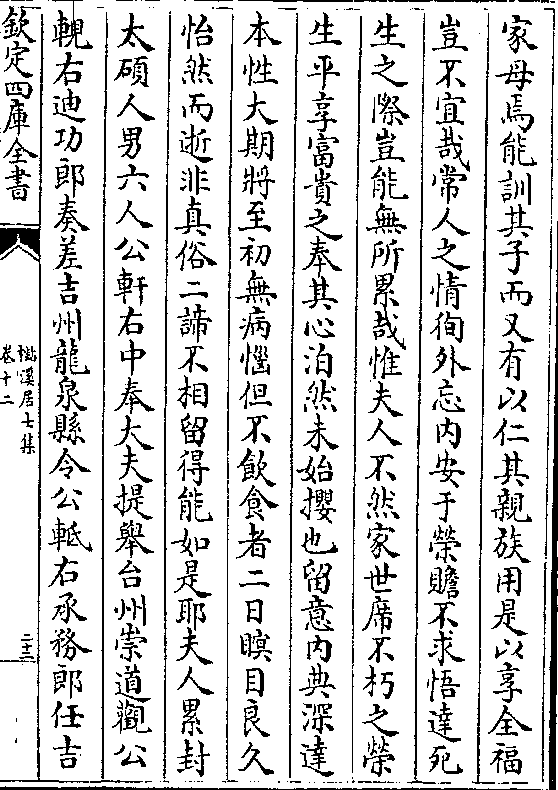 家母焉能訓其子而又有以仁其親族用是以享全福
豈不宜哉常人之情徇外忘内安于榮贍不求悟達死
生之際豈能無所累哉惟夫人不然家世席不朽之榮
生平享富貴之奉其心泊然未始攖也留意内典深達
本性大期將至初無病惱但不飲食者二日瞑目良久
怡然而逝非真俗二諦不相留得能如是耶夫人累封
太碩人男六人公軒右中奉大夫提舉台州崇道觀公
輗右迪功郎奏差吉州龍泉縣令公軧右承務郎任吉
欽定四庫全書
楙溪居士集
卷十二
二十二